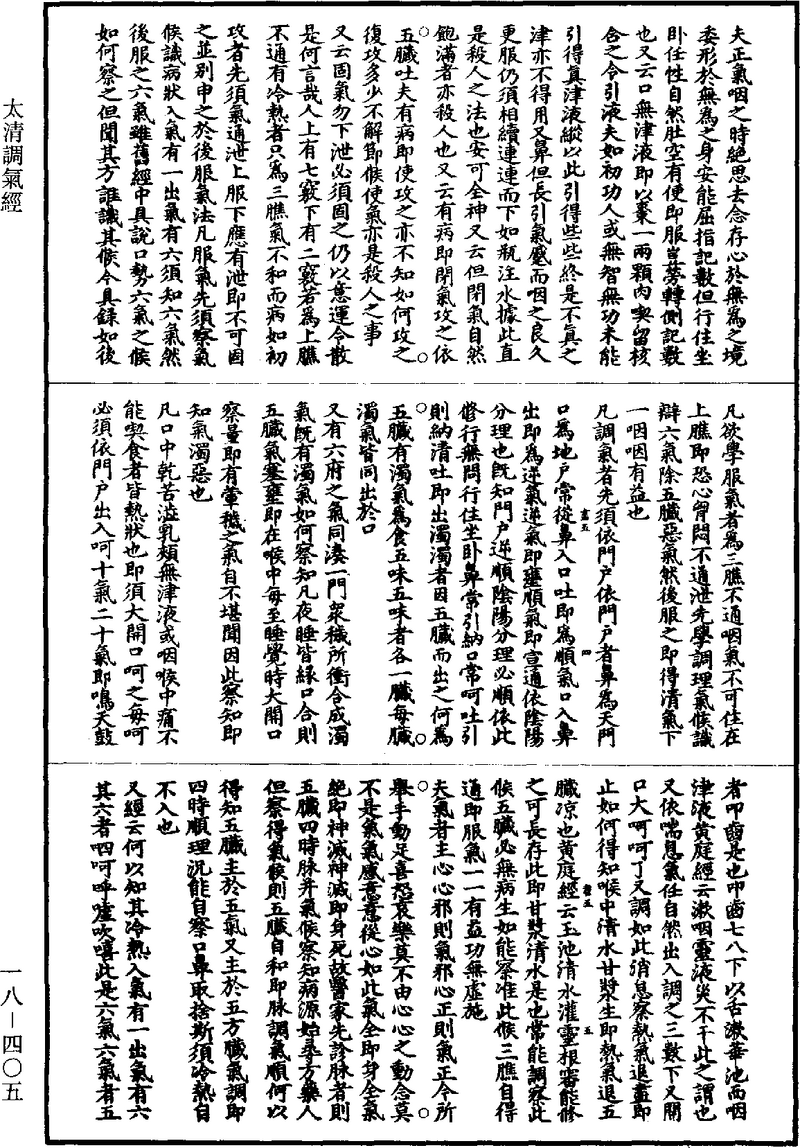 太清調氣經
一八-四〇五
夫正氣咽之時絕思去念存心於無為之境
委形於無為之身安能屈指記數但行住坐
卧任性自然肚空有便即服豈勞轉側記數
也又云口無津液即以棗一兩顆肉喫留核
含之令引液夫如初功人或無智無功未能
引得真津液縱以此引得些些終是不真之
津亦不得用又鼻但長引氣䰟而咽之良久
更服仍須相續連連而下如瓶注水據此直
是殺人之法也安可全神又云但閉氣自然
飽滿者亦殺人也又云有病即閉氣攻之依
五臟吐夫有病即使攻之亦不知如何攻之
復攻多少不解節候使氣亦是殺人之事
又云固氣勿下泄必須固之仍以意運令散
是何言哉人上有七竅下有二竅若為上膲
不通有冷熱者只為三膲氣不和而病如初
攻者先須氣通泄上服下應有泄即不可固
之並別申之於後服氣法凡服氣先須察氣
候識病狀入氣有一出氣有六須知六氣然
後服之六氣雖舊經中具說口勢六氣之候
如何察之但聞其方誰識其候今具錄如後
凡欲學服氣者為三膲不通咽氣不可住在
上膲即恐心胷悶不通泄先學調理氣候識
辯六氣除五臟惡氣然後服之即得清氣下
一咽咽有益也
凡調氣者先須依門戶依門戶者鼻為天門
口為地戶常從鼻入口吐即為順氣口入鼻
出即為逆氣逆氣即壅順氣即宣通依陰陽
分理也既知門戶逆順陰陽分理必順依此
修行無問行住坐卧鼻常引納口常呵吐引
則納清吐即出濁濁者因五臟而出之何為
五臟有濁氣為食五味五味者各一臟每臟
濁氣皆同出於口
又有六府之氣同湊一門衆穢所衝合成濁
氣既有濁氣如何察知凡夜睡皆緣口合則
五臟氣塞壅即在喉中每至睡覺時大開口
察量即有葷穢之氣自不堪聞因此察知即
知氣濁惡也
凡口中乾苦澁乳頰無津液或咽喉中痛不
能喫食者皆熱狀也即須大開口呵之每呵
必須依門戶出入呵十氣二十氣即鳴天鼓
者叩齒是也叩齒七八下以舌漱華池而咽
津液黃庭經云漱咽靈液災不干此之謂也
又依喘息氣任自然出入調之三數下又開
口大呵呵了又調如此消息察熱氣退盡即
止如何得知喉中清水甘漿生即熱氣退五
臟凉也黃庭經云玉池清水灌靈根審能修
之可長存此即甘漿清水是也常能調察此
候五臟必無病生如能察准此候三膲自得
通即服氣一一有益功無虛施
夫氣者主心心邪則氣邪心正則氣正今所
舉手動足喜怒哀樂莫不由心心之動念莫
不是氣氣感意意從心如此氣全即身全氣
絕即神滅神滅即身死故醫家先診脉者則
五臟四時脉并氣候察知病源始尋方藥人
但察得氣候則五臟自和即脉調氣順何以
得知五臟主於五氣又主於五方臟氣調即
四時順理況能自察口鼻取捨斯須冷熱自
不入也
又經云何以知其冷熱入氣有一出氣有六
其六者呬呵呼噓吹嘻此是六氣六氣者五